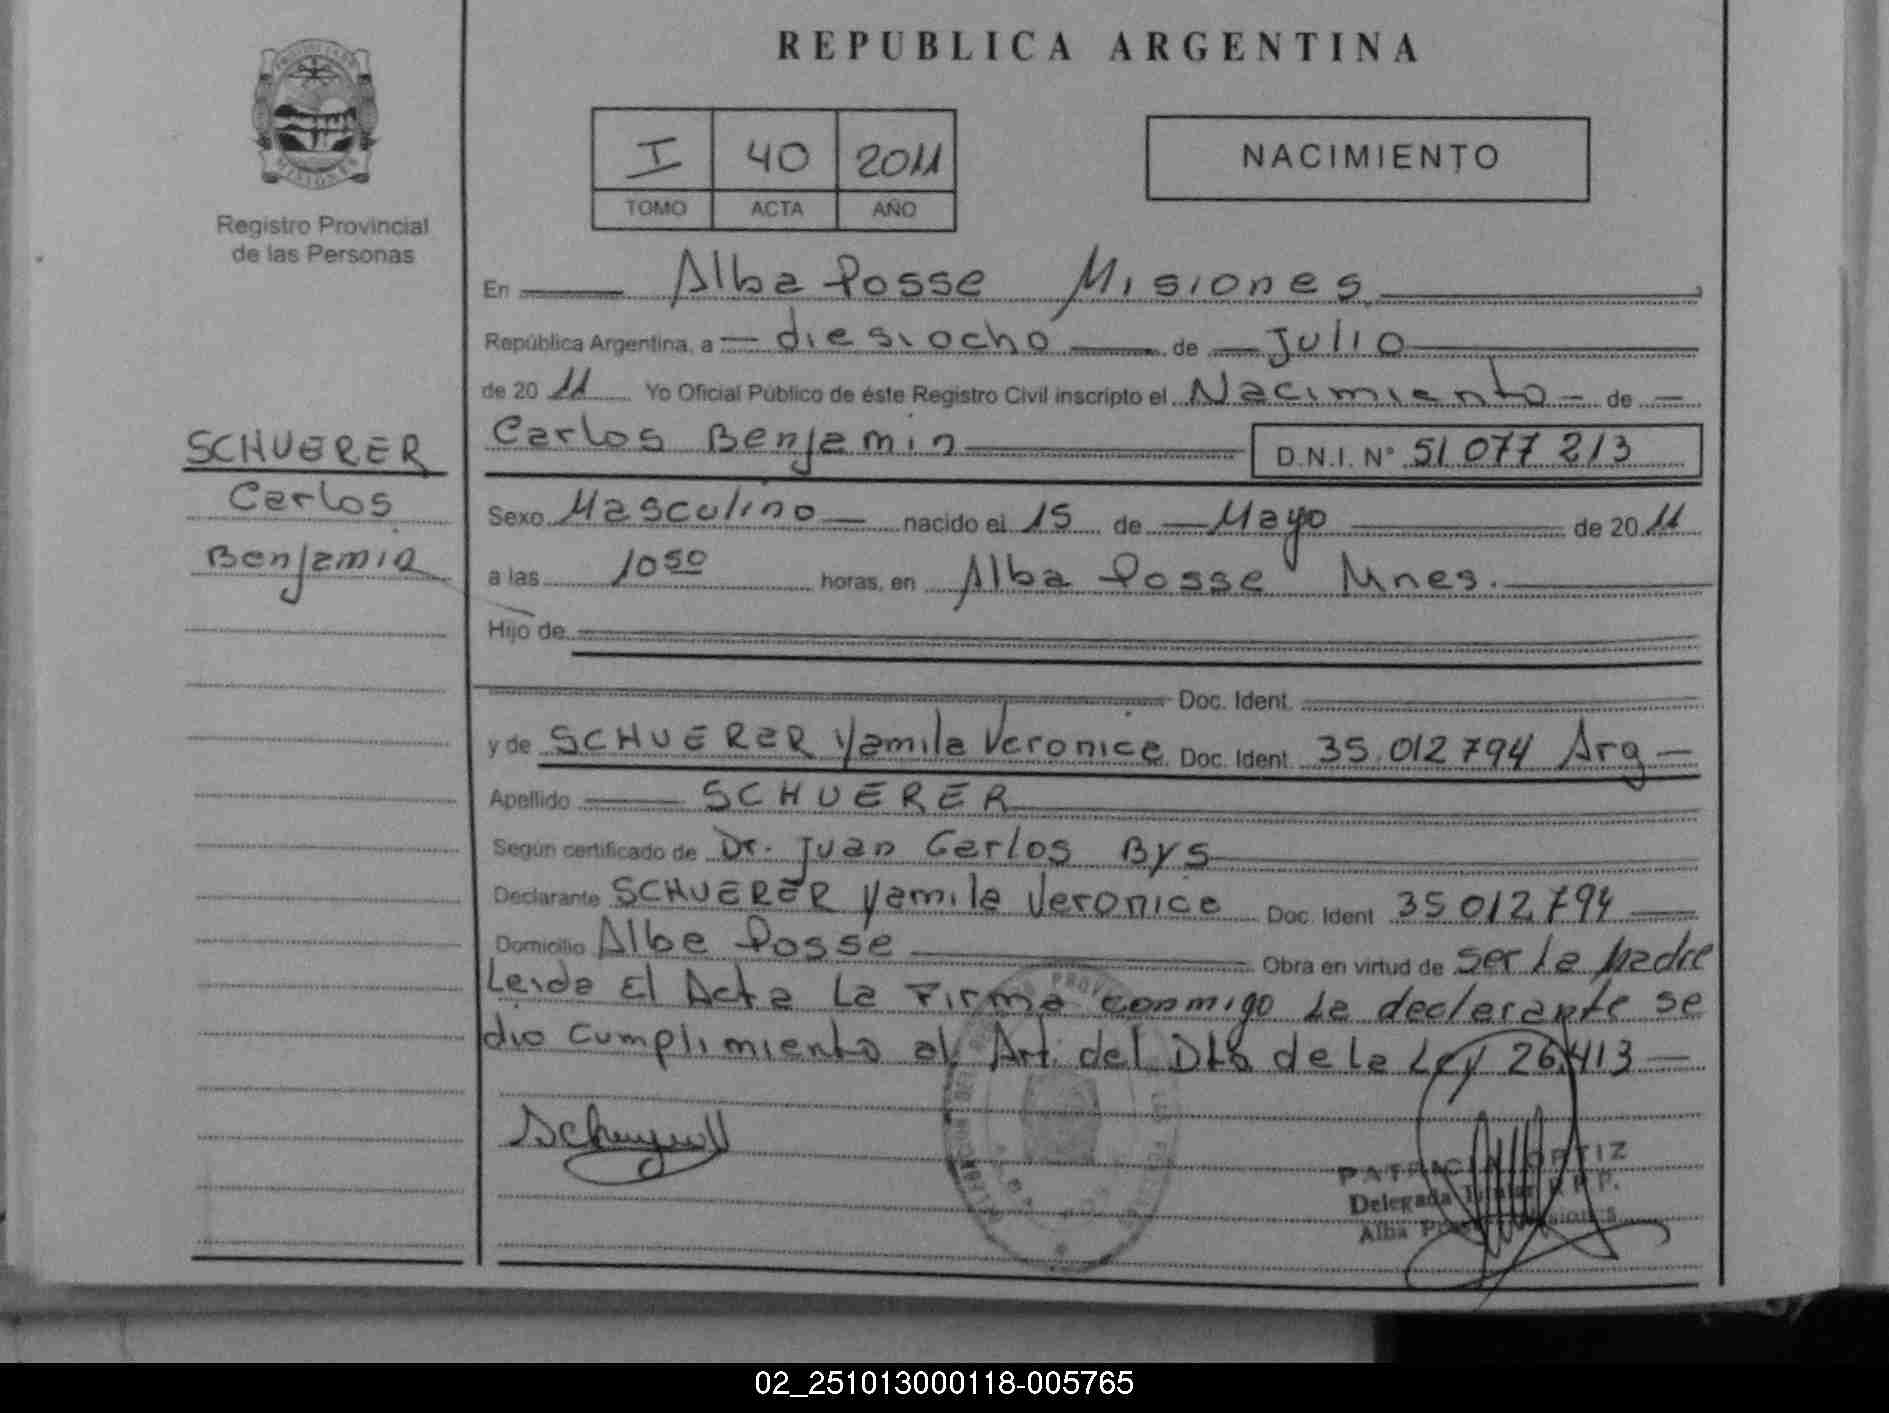 REPUBLICA ARGENTINA
I 40 2011
TOMO ACTA AÑO
NACIMIENTO
Registro Provincial
de las Personas
SCHUERER
Carlos
Benjamin
En Alba Posse Misiones
República Argentina, a diesiocho de Julio
de 20 11 Yo Oficial Público de éste Registro Civil inscripto el Nacimiento de
Carlos Benjamin D.N.I. N° 51 077 213
Sexo Masculino nacido el 15 de Mayo de 20 11
a las 10 50 horas, en Alba Posse Mnes.
Hijo de
Doc. Ident.
y de SCHUERER Yamila Veronica Doc. Ident. 35.012 794 Arg
Apellido SCHUERER
Según certificado de Dr. Juan Carlos Bys
Declarante SCHUERER Yamila Veronica Doc. Ident 35 012 794
Domicilio Alba Posse Obra en virtud de Ser La Madre
Leida El Acta La Firma conmigo La declarante se
dio cumplimiento al Art. del de la Ley 26.413
PATRICIA ORTIZ
Delegada Titular R.P.P.
Alba Posse Misiones
02_251013000118-005765